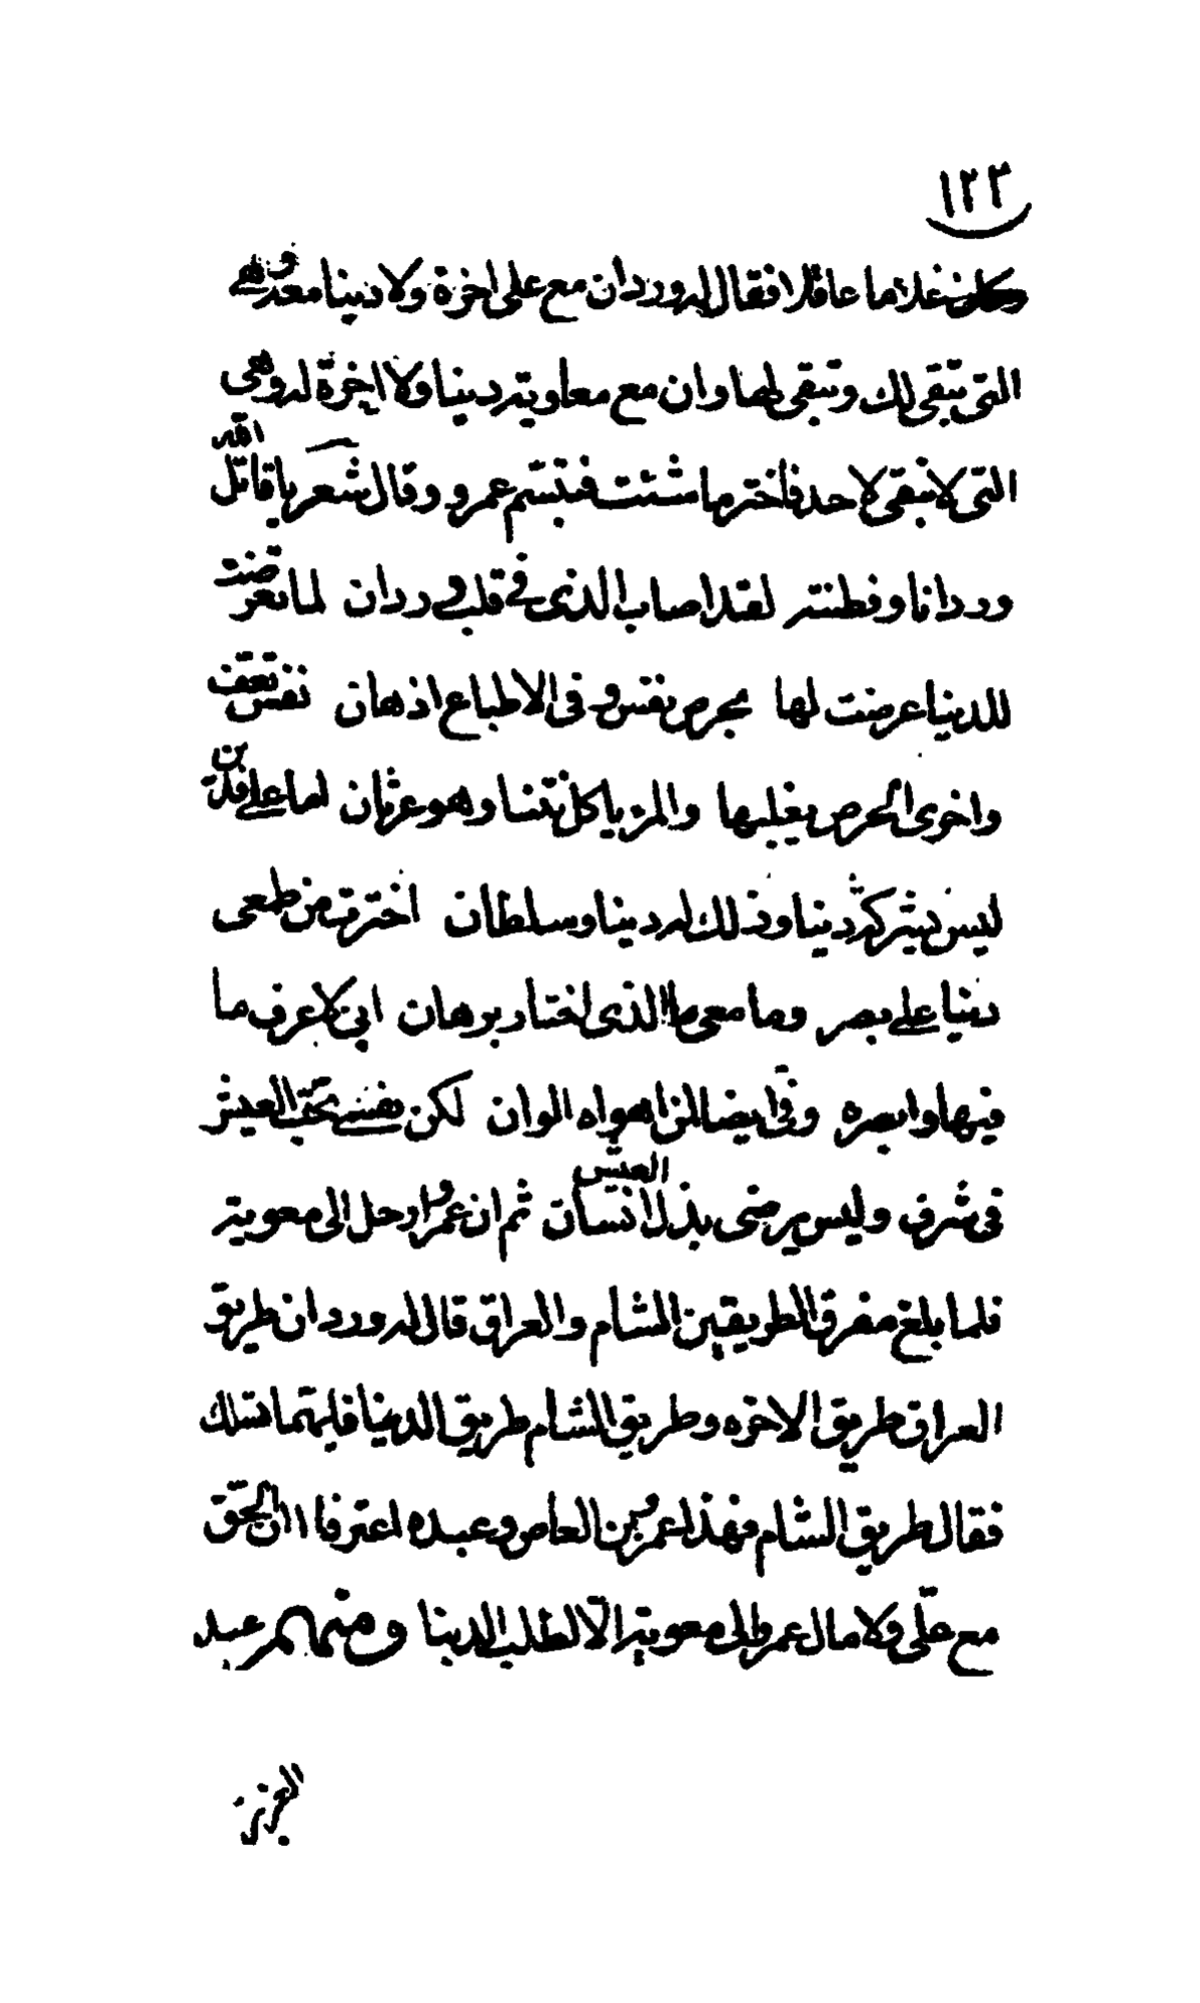 ١٢٣
وكان غلاما عاقلا فقال له وردان مع علي اخرة ولا دينا معه وهي
التى تبقى لك وتبقى لها وان مع معاوية دينا ولا اخرة له وهى
التى لا تبقى لاحد فاختر ما شئت فتبسّم عمرو وقال شعر يا قاتل الله
وردانا وفطنته لقد اصاب الذى فى قلب وردان لما تعرضت
للدنيا عرضت لها بحرص نفس وفى الاطباع اذهان نفس تعف
واخرى الحرص يغلبها والمرء ياكل نتنا وهو غرثان اما علي فدين
ليس يشركه دينا وذلك له دينا وسلطان اخترت من طمعى
دنيا على بصر وما معى بالذى اختار برهان اني لاعرف ما
فيها وابصره وفيّ ايضا لمن اهواه الوان لكن نفسي تحبّ العيش
فى شرف وليس يرضى بذل العيش انسان ثم ان عمرو ارحل الى معوية
فلما بلغ مفرق الطريقين الشام والعراق قال له وردان طريق
العراق طريق الاخره وطريق الشام طريق الدنيا فايّهما نسلك
فقال طريق الشام فهذا عمرو بن العاص وعبده اعترفا ان الحقّ
مع علّى ولا مال عمرو الى معوية الّا لطلب الدينا ومنهم عمر عبد
العزيز